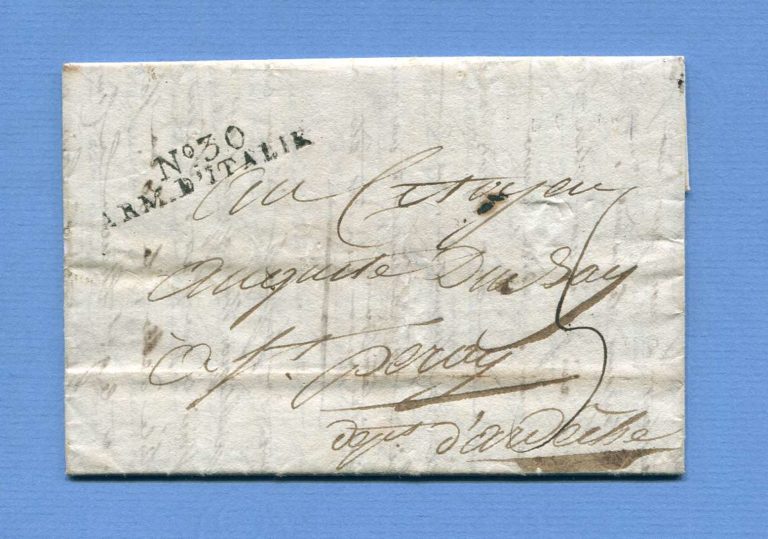 No 30
ARM. D'ITALIE
Au Citoyen
auguste Dubay
à St. péray
dept. d'ardèche